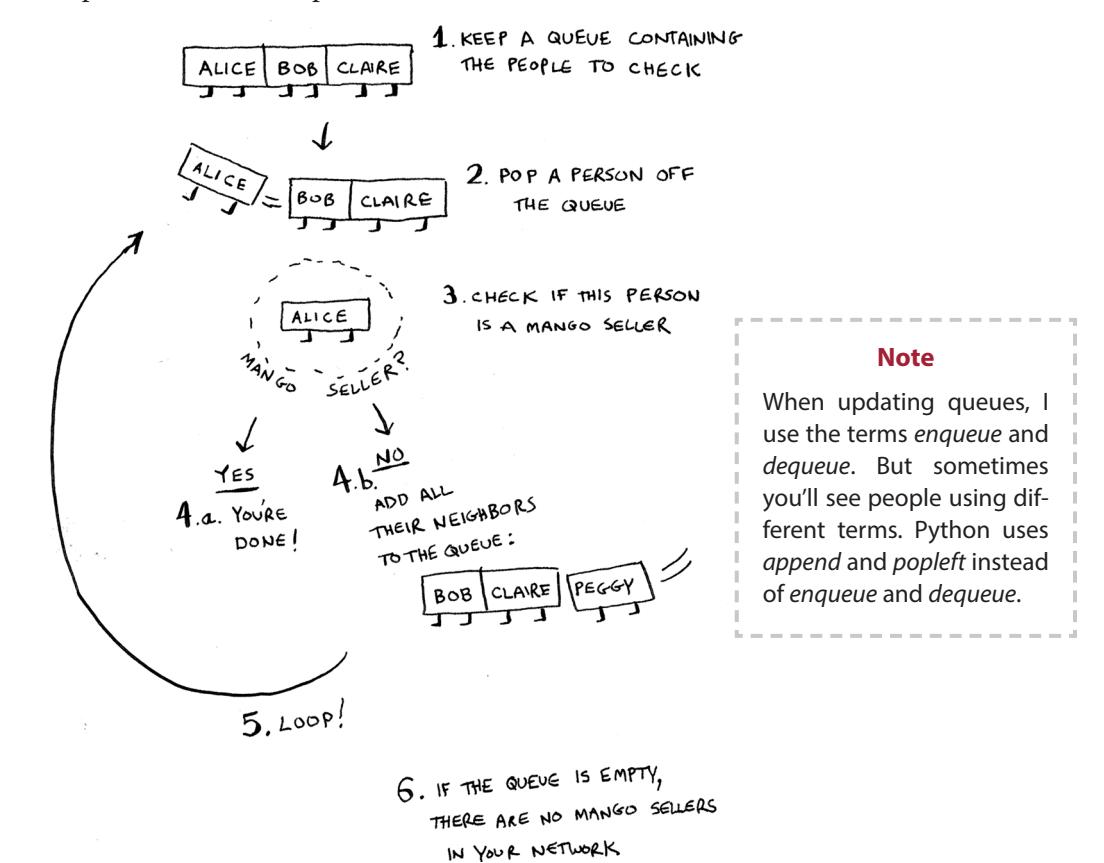 ALICE BOB CLAIRE
1. KEEP A QUEUE CONTAINING
THE PEOPLE TO CHECK
ALICE
BOB CLAIRE
2. POP A PERSON OFF
THE QUEUE
ALICE
MANGO SELLER?
3. CHECK IF THIS PERSON
IS A MANGO SELLER
YES
4.a. YOU'RE
DONE!
4.b. NO
ADD ALL
THEIR NEIGHBORS
TO THE QUEUE:
BOB CLAIRE PEGGY
5. LOOP!
6. IF THE QUEUE IS EMPTY,
THERE ARE NO MANGO SELLERS
IN YOUR NETWORK
Note
When updating queues, I
use the terms enqueue and
dequeue. But sometimes
you'll see people using dif-
ferent terms. Python uses
append and popleft instead
of enqueue and dequeue.